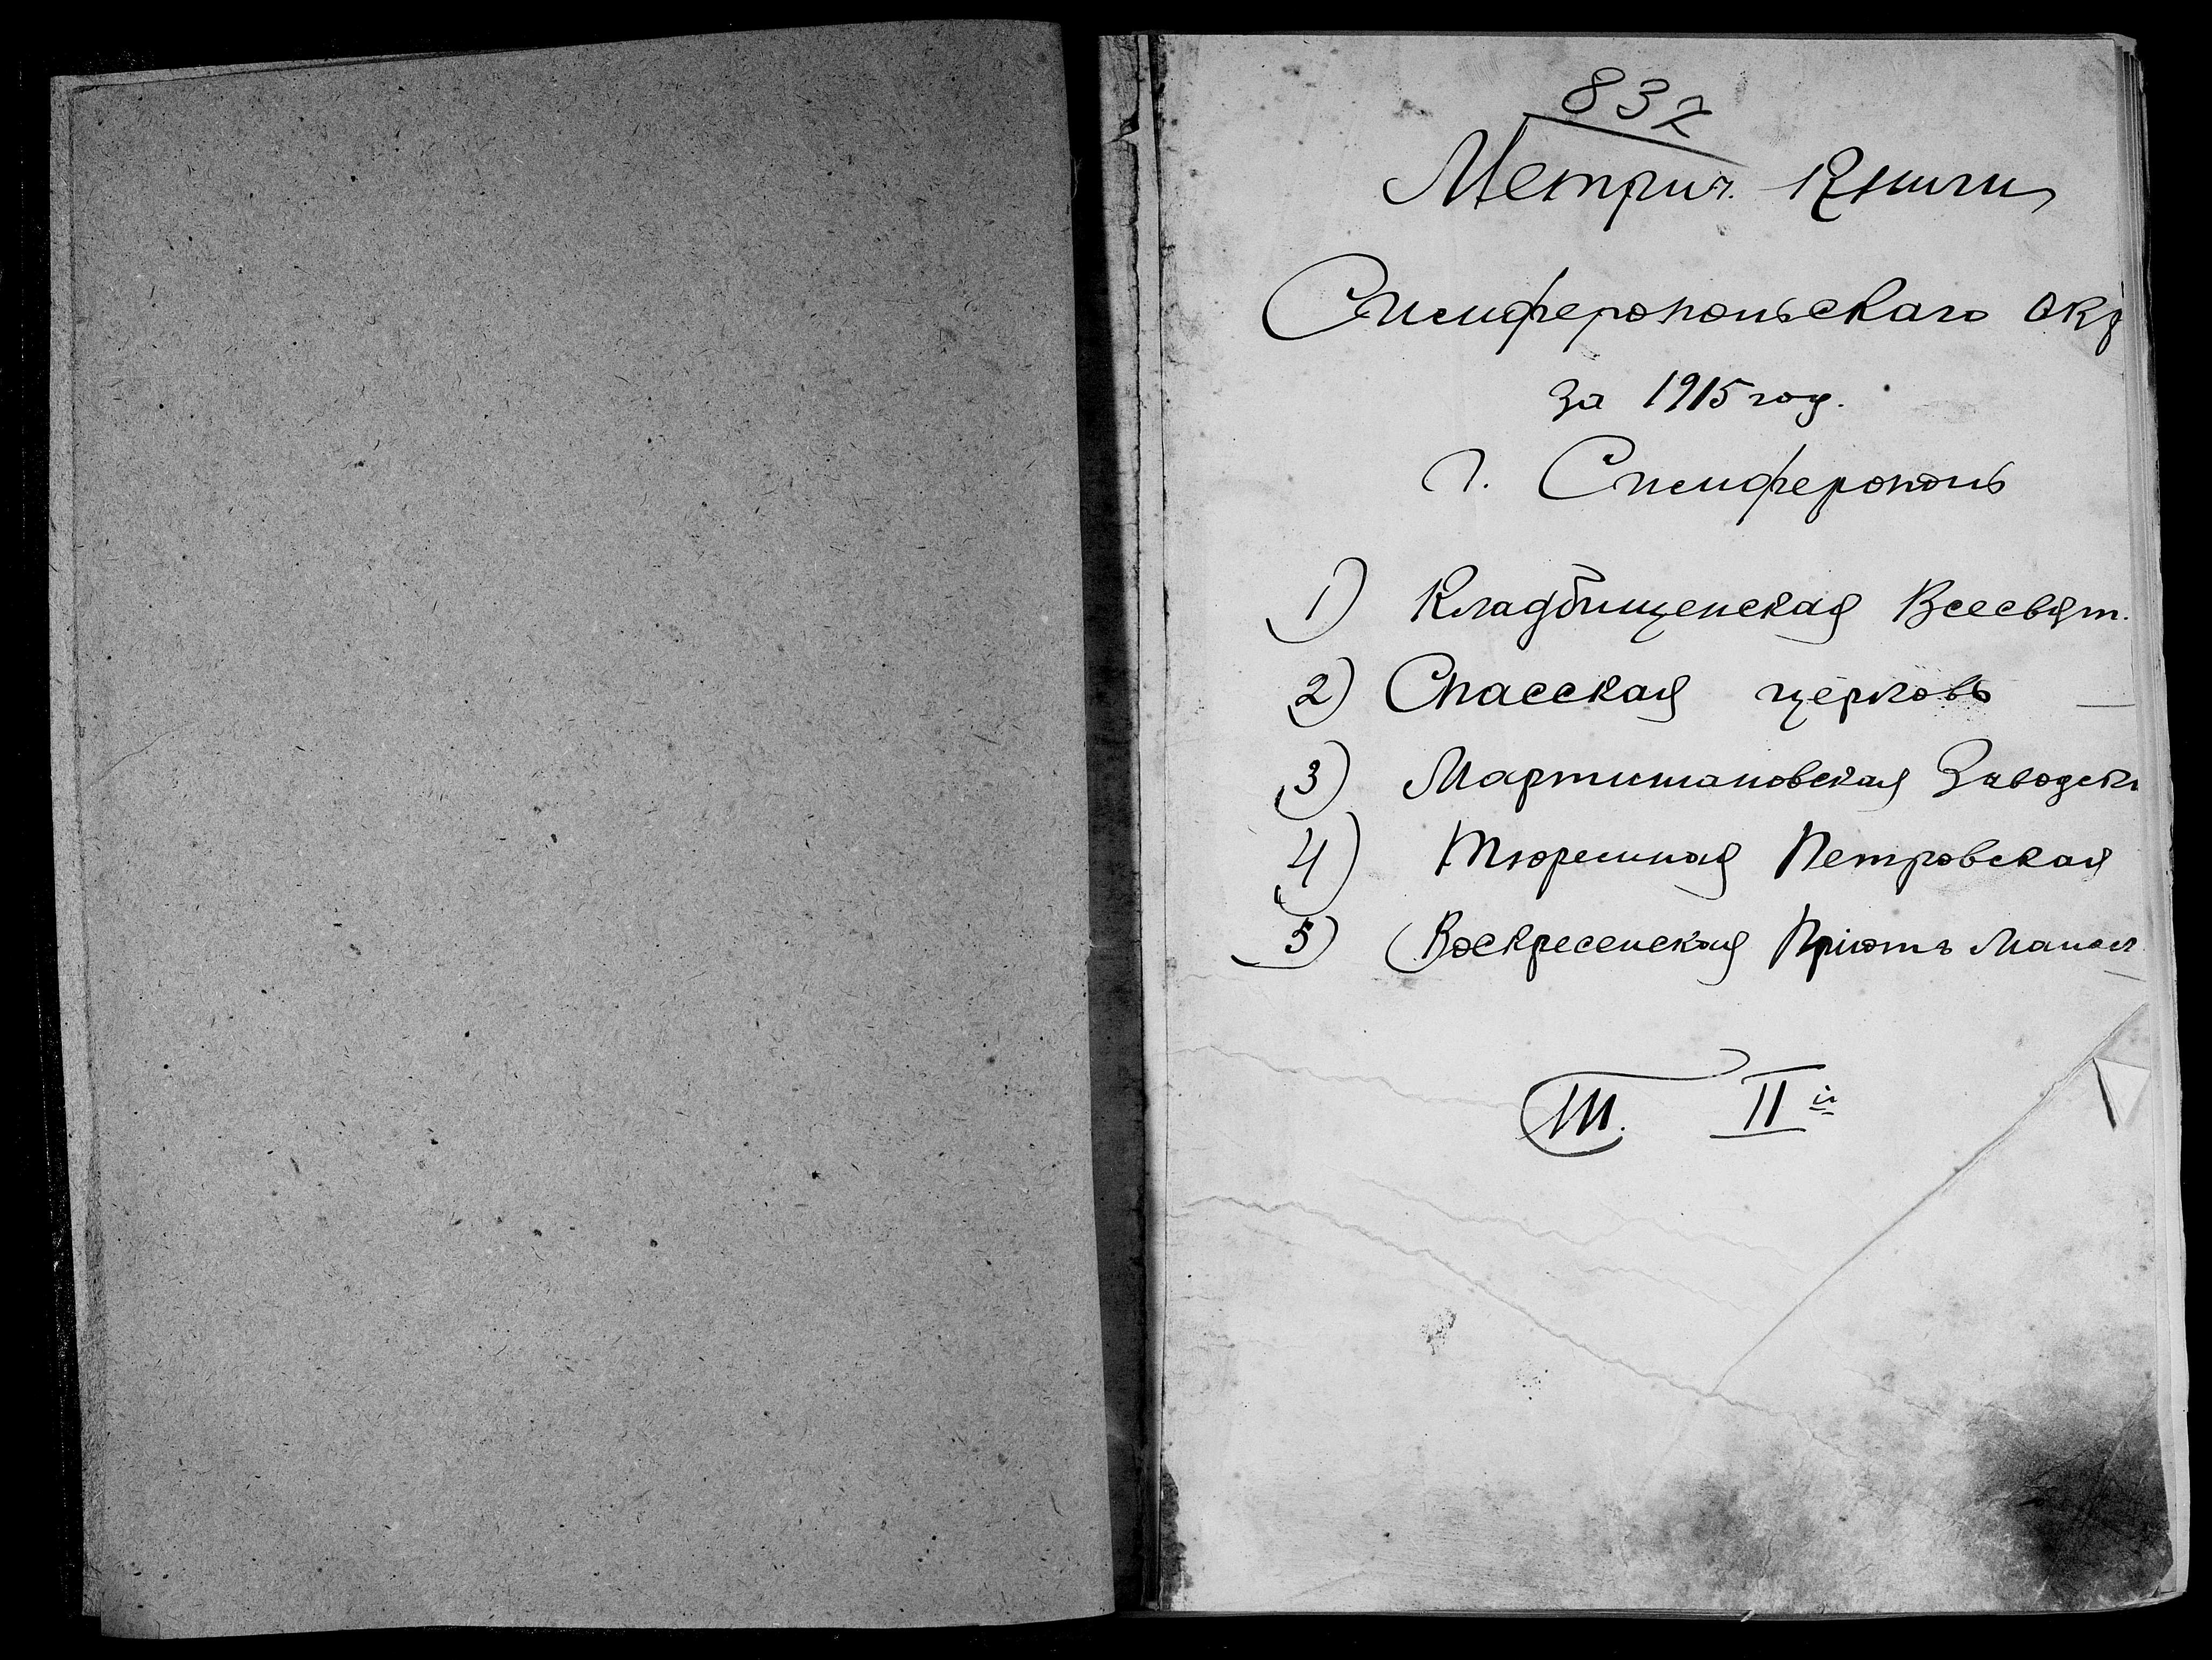 837
Метрич. Книги
Симферопольскаго окр
за 1915 год.
г. Симферополь
1) Кладбищенская Всесвят.
2) Спасская церковь
3) Мартинановская Заводск
4) Тюремная Петровская
5) Воскресенская Пріютъ
Т. II й